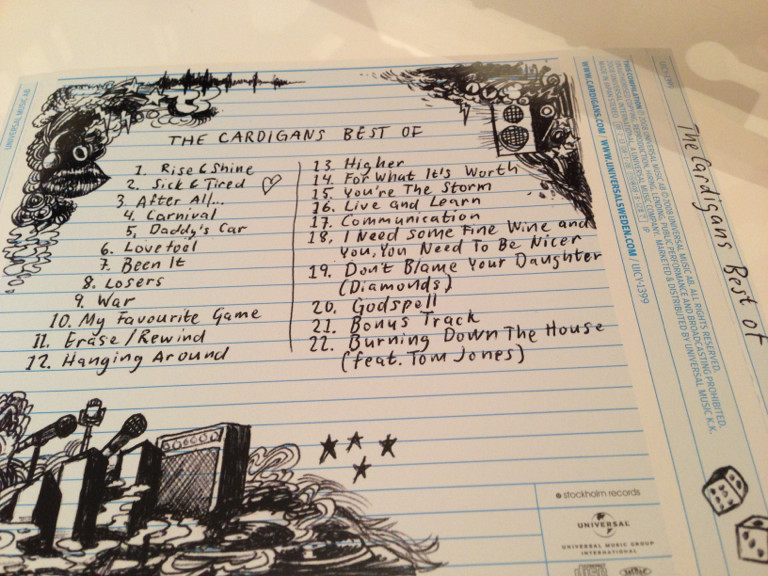 THE CARDIGANS BEST OF
1. Rise & Shine
2. Sick & Tired
3. After All...
4. Carnival
5. Daddy's Car
6. Lovefool
7. Been It
8. Losers
9. War
10. My Favourite Game
11. Erase/Rewind
12. Hanging Around
13. Higher
14. For What It's Worth
15. You're The Storm
16. Live and Learn
17. Communication
18. I Need Some Fine Wine and
You, You Need To Be Nicer
19. Don't Blame Your Daughter
(Diamonds)
20. Godspell
21. Bonus Track
22. Burning Down The House
(feat. Tom Jones)
stockholm records
UNIVERSAL
UNIVERSAL MUSIC GROUP
INTERNATIONAL
UNIVERSAL MUSIC AB
WWW.CARDIGANS.COM / WWW.UNIVERSALSWEDEN.COM / UICY-1399
The Cardigans Best of